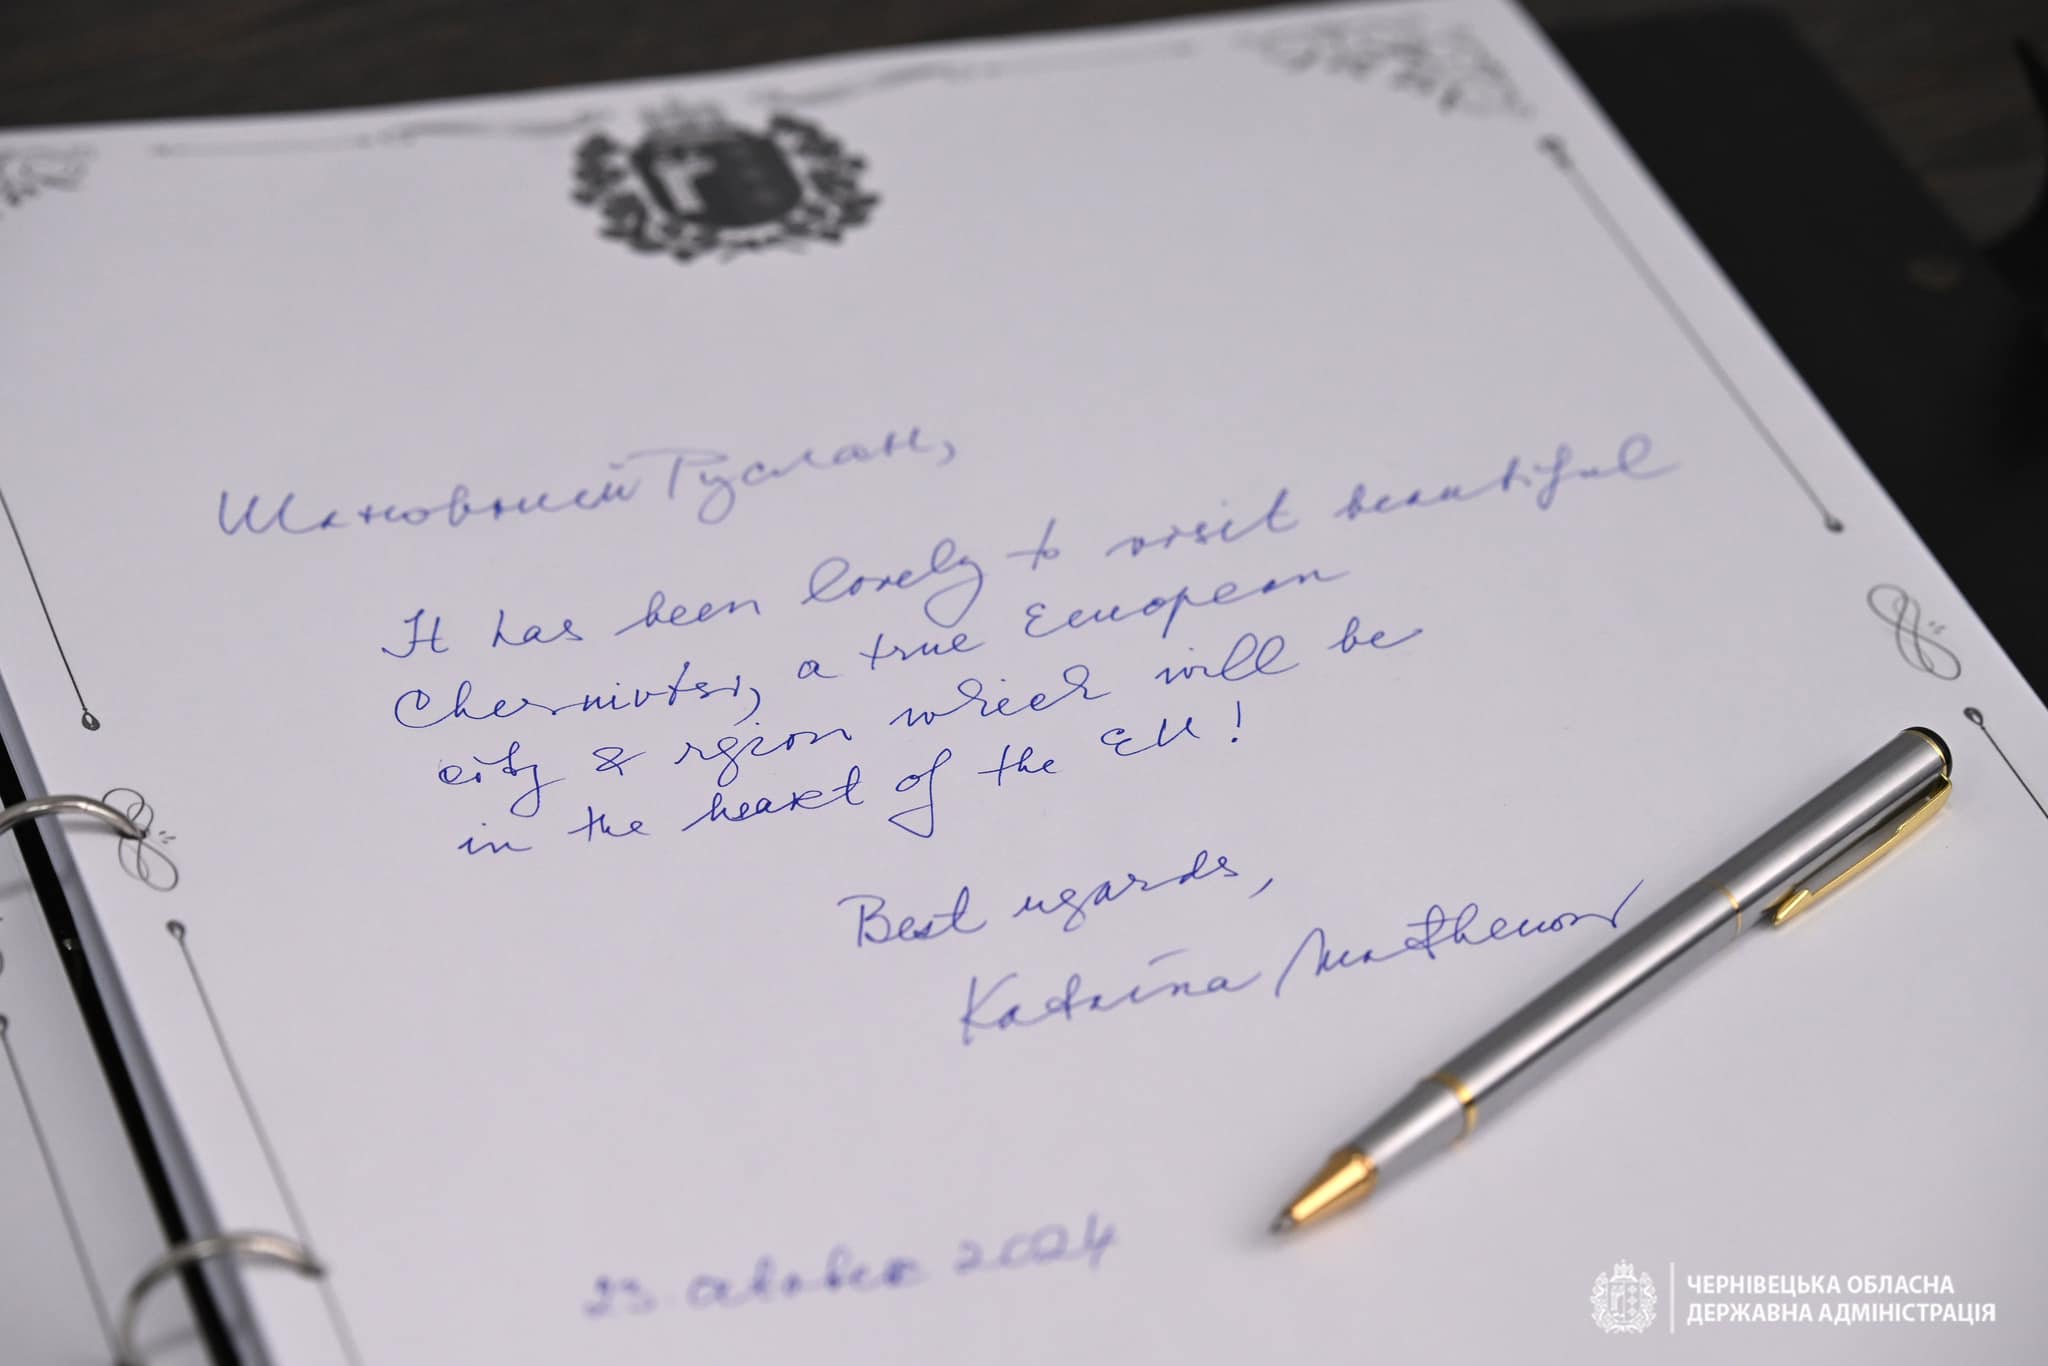 Шановний Руслан,
It has been lovely to visit beautiful
Chernivtsi, a true European
city & region which will be
in the heart of the EU!
Best regards,
Katarína Mathernová
23. october 2024
ЧЕРНІВЕЦЬКА ОБЛАСНА
ДЕРЖАВНА АДМІНІСТРАЦІЯ